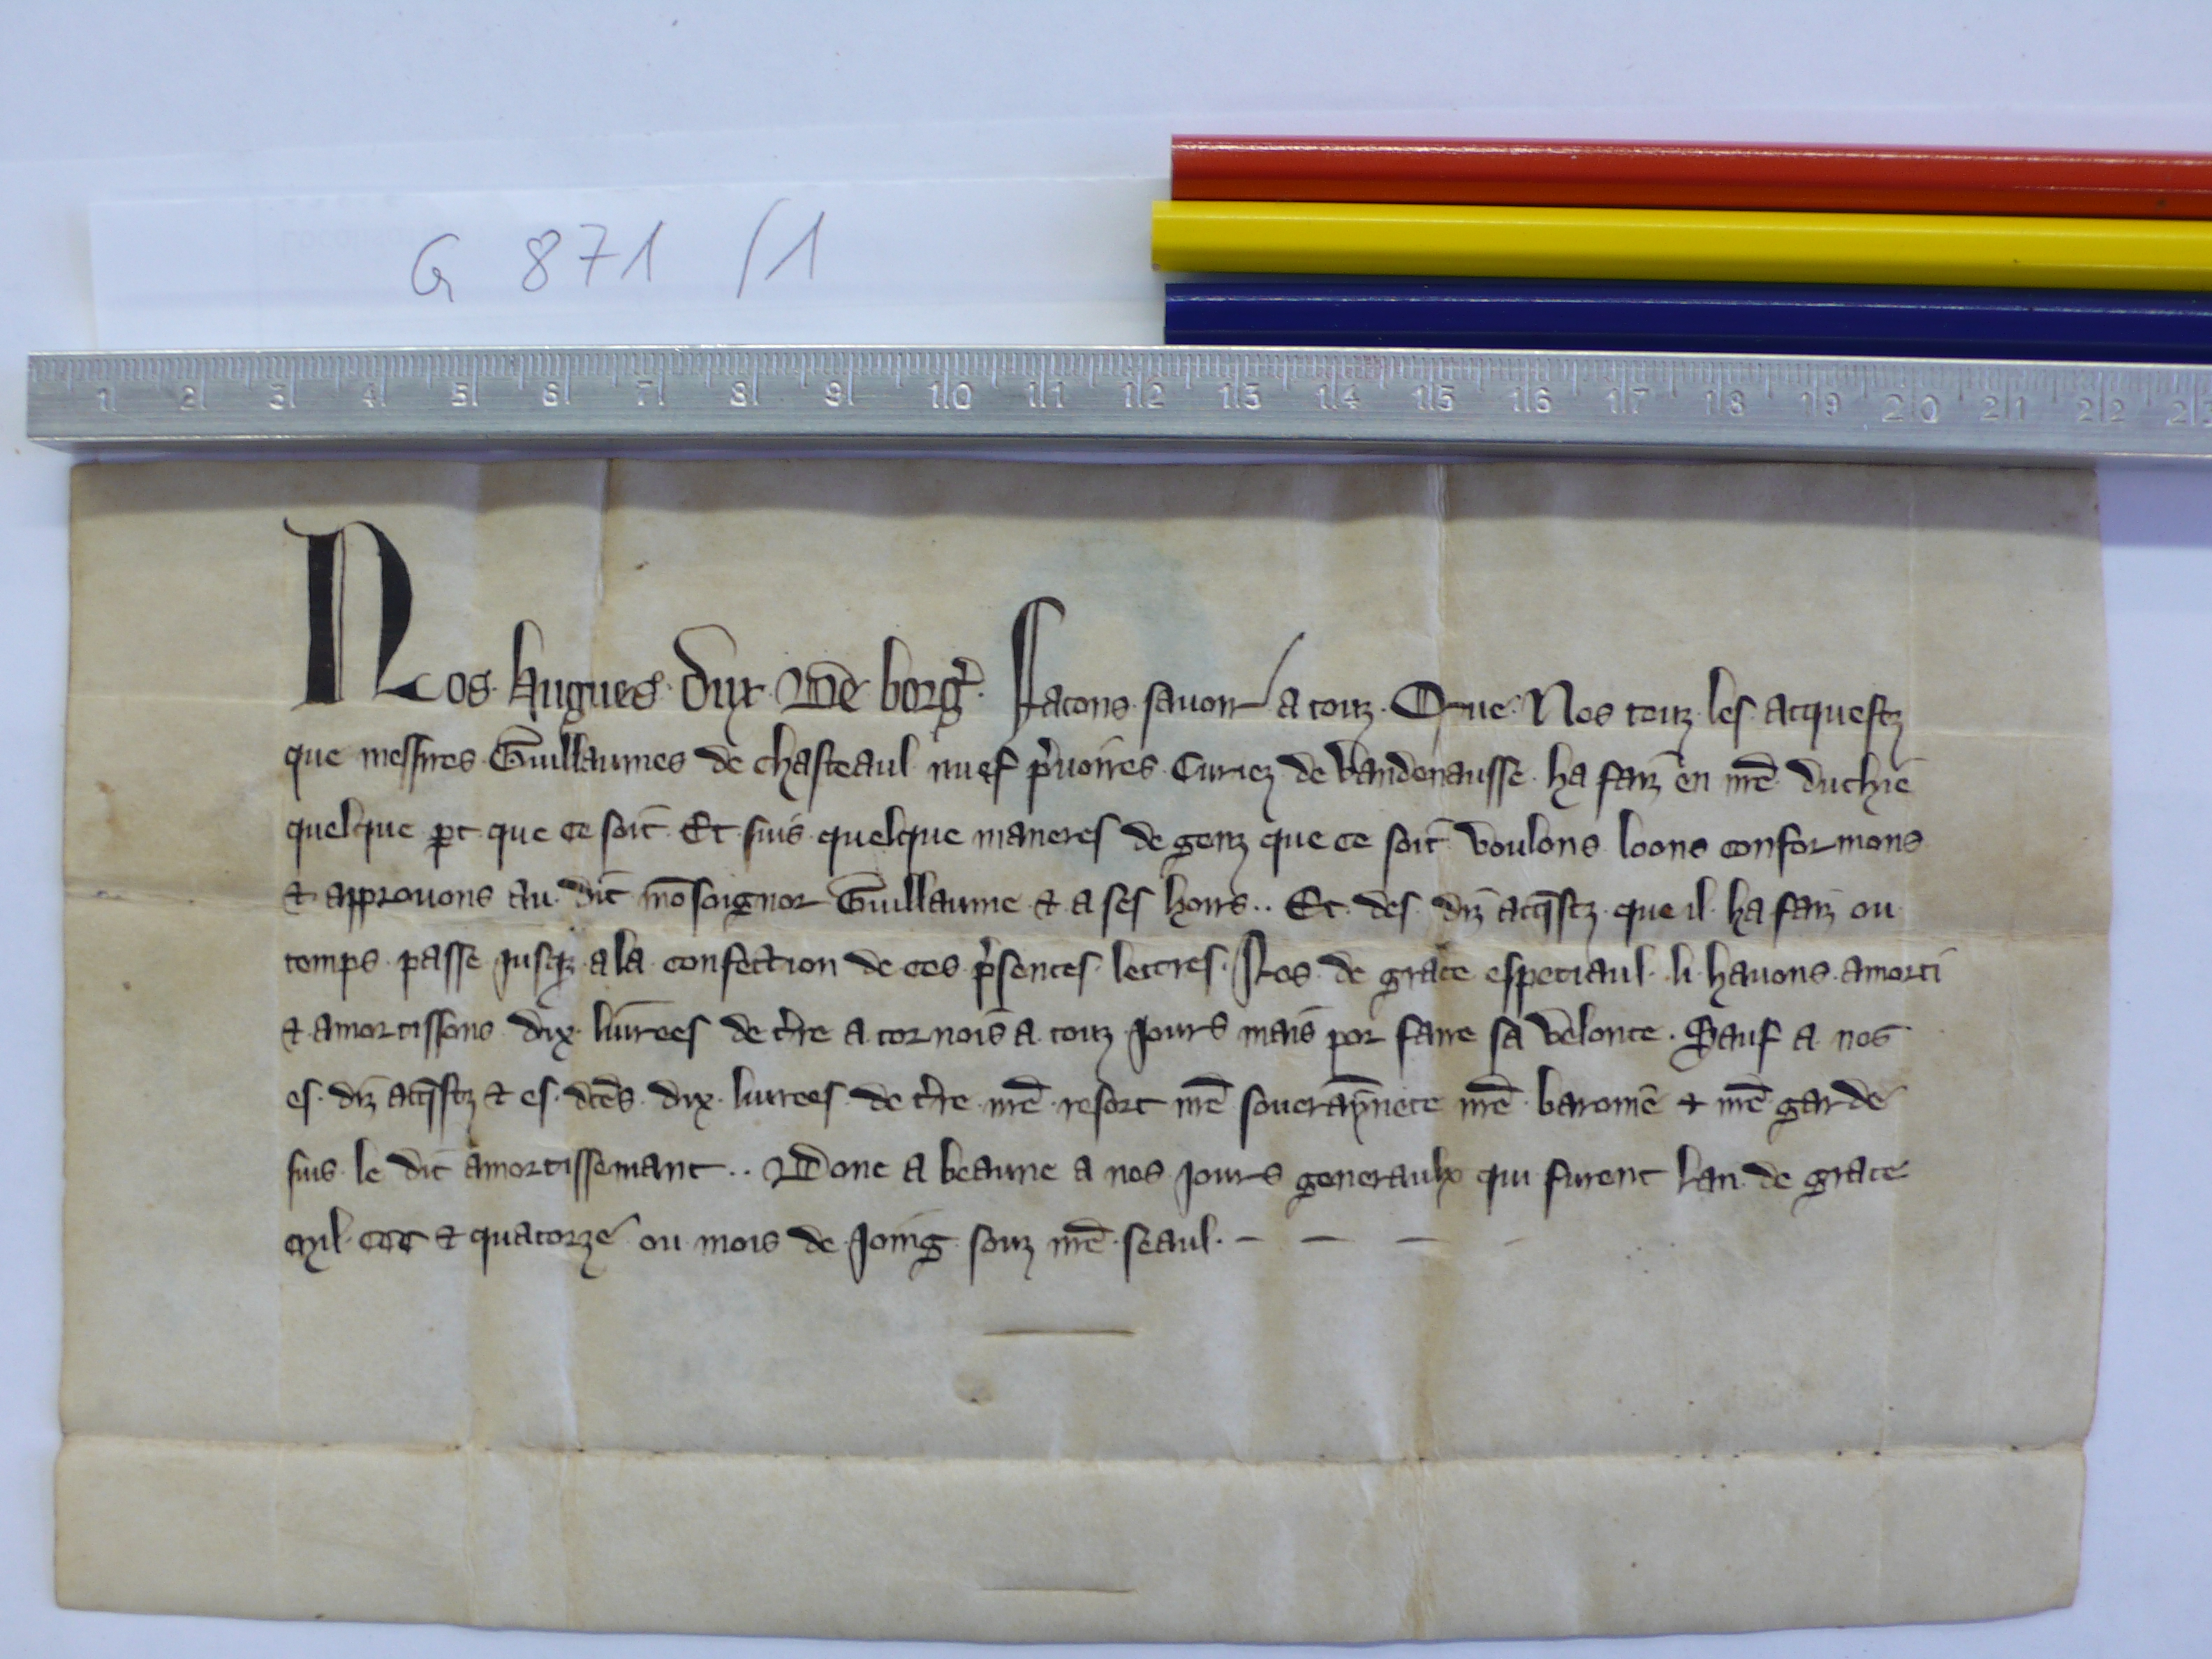 G 871 /1
1 2 3 4 5 6 7 8 9 10 11 12 13 14 15 16 17 18 19 20 21 22 23
Nos hugues dux de borg̃. Facons savoir a touz. Que Nos touz les acquestz
que messires Guillaumes de chasteaul nuef p̃voires curiez de Vandenausse ha faiz en nr̃e duchie
quelque p̱t que ce soit Et suis quelque maneres de genz que ce soit Voulons loons conformons
⁊ approvons au dit mõsoignor Guillaume ⁊ a ses hoirs.. Et des diz acq̃stz que il ha faiz ou
temps passe jusq̃z a la confection de ces p̃sentes lettres. Nos de grace espetiaul li havons amorti
⁊ amortissons dix livrees de t̃re a tornois a touz jours mais por faire sa velonte. Sauf a nos
es diz acq̃stz ⁊ es dc̃es dix livrees de t̃re nr̃e resort nr̃e soveraynete nr̃e baronie ⁊ nr̃e garde
suis le dit amortissemant.. Done a beaune a nos jours generaulx qui furent lan de grace
mil. ccc ⁊ quatorze ou mois de joing souz nr̃e seaul. – – – –